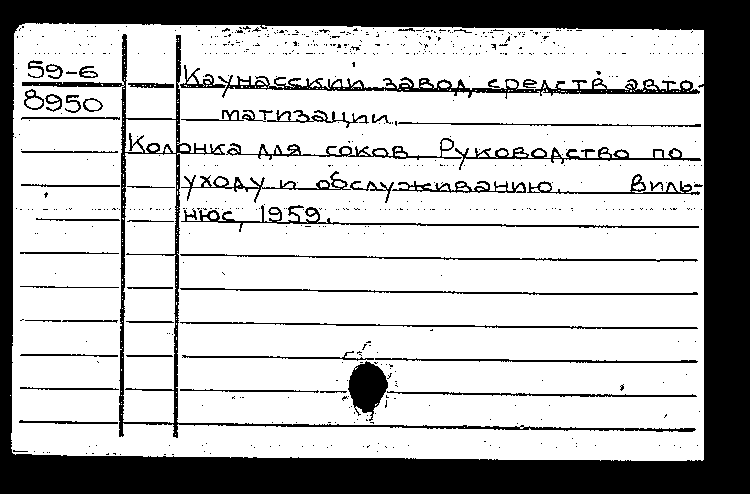 59-6 Каунасский завод средств авто-
8950 матизации.
Колонка для соков. Руководство по
уходу и обслуживанию. Виль-
нюс, 1959.